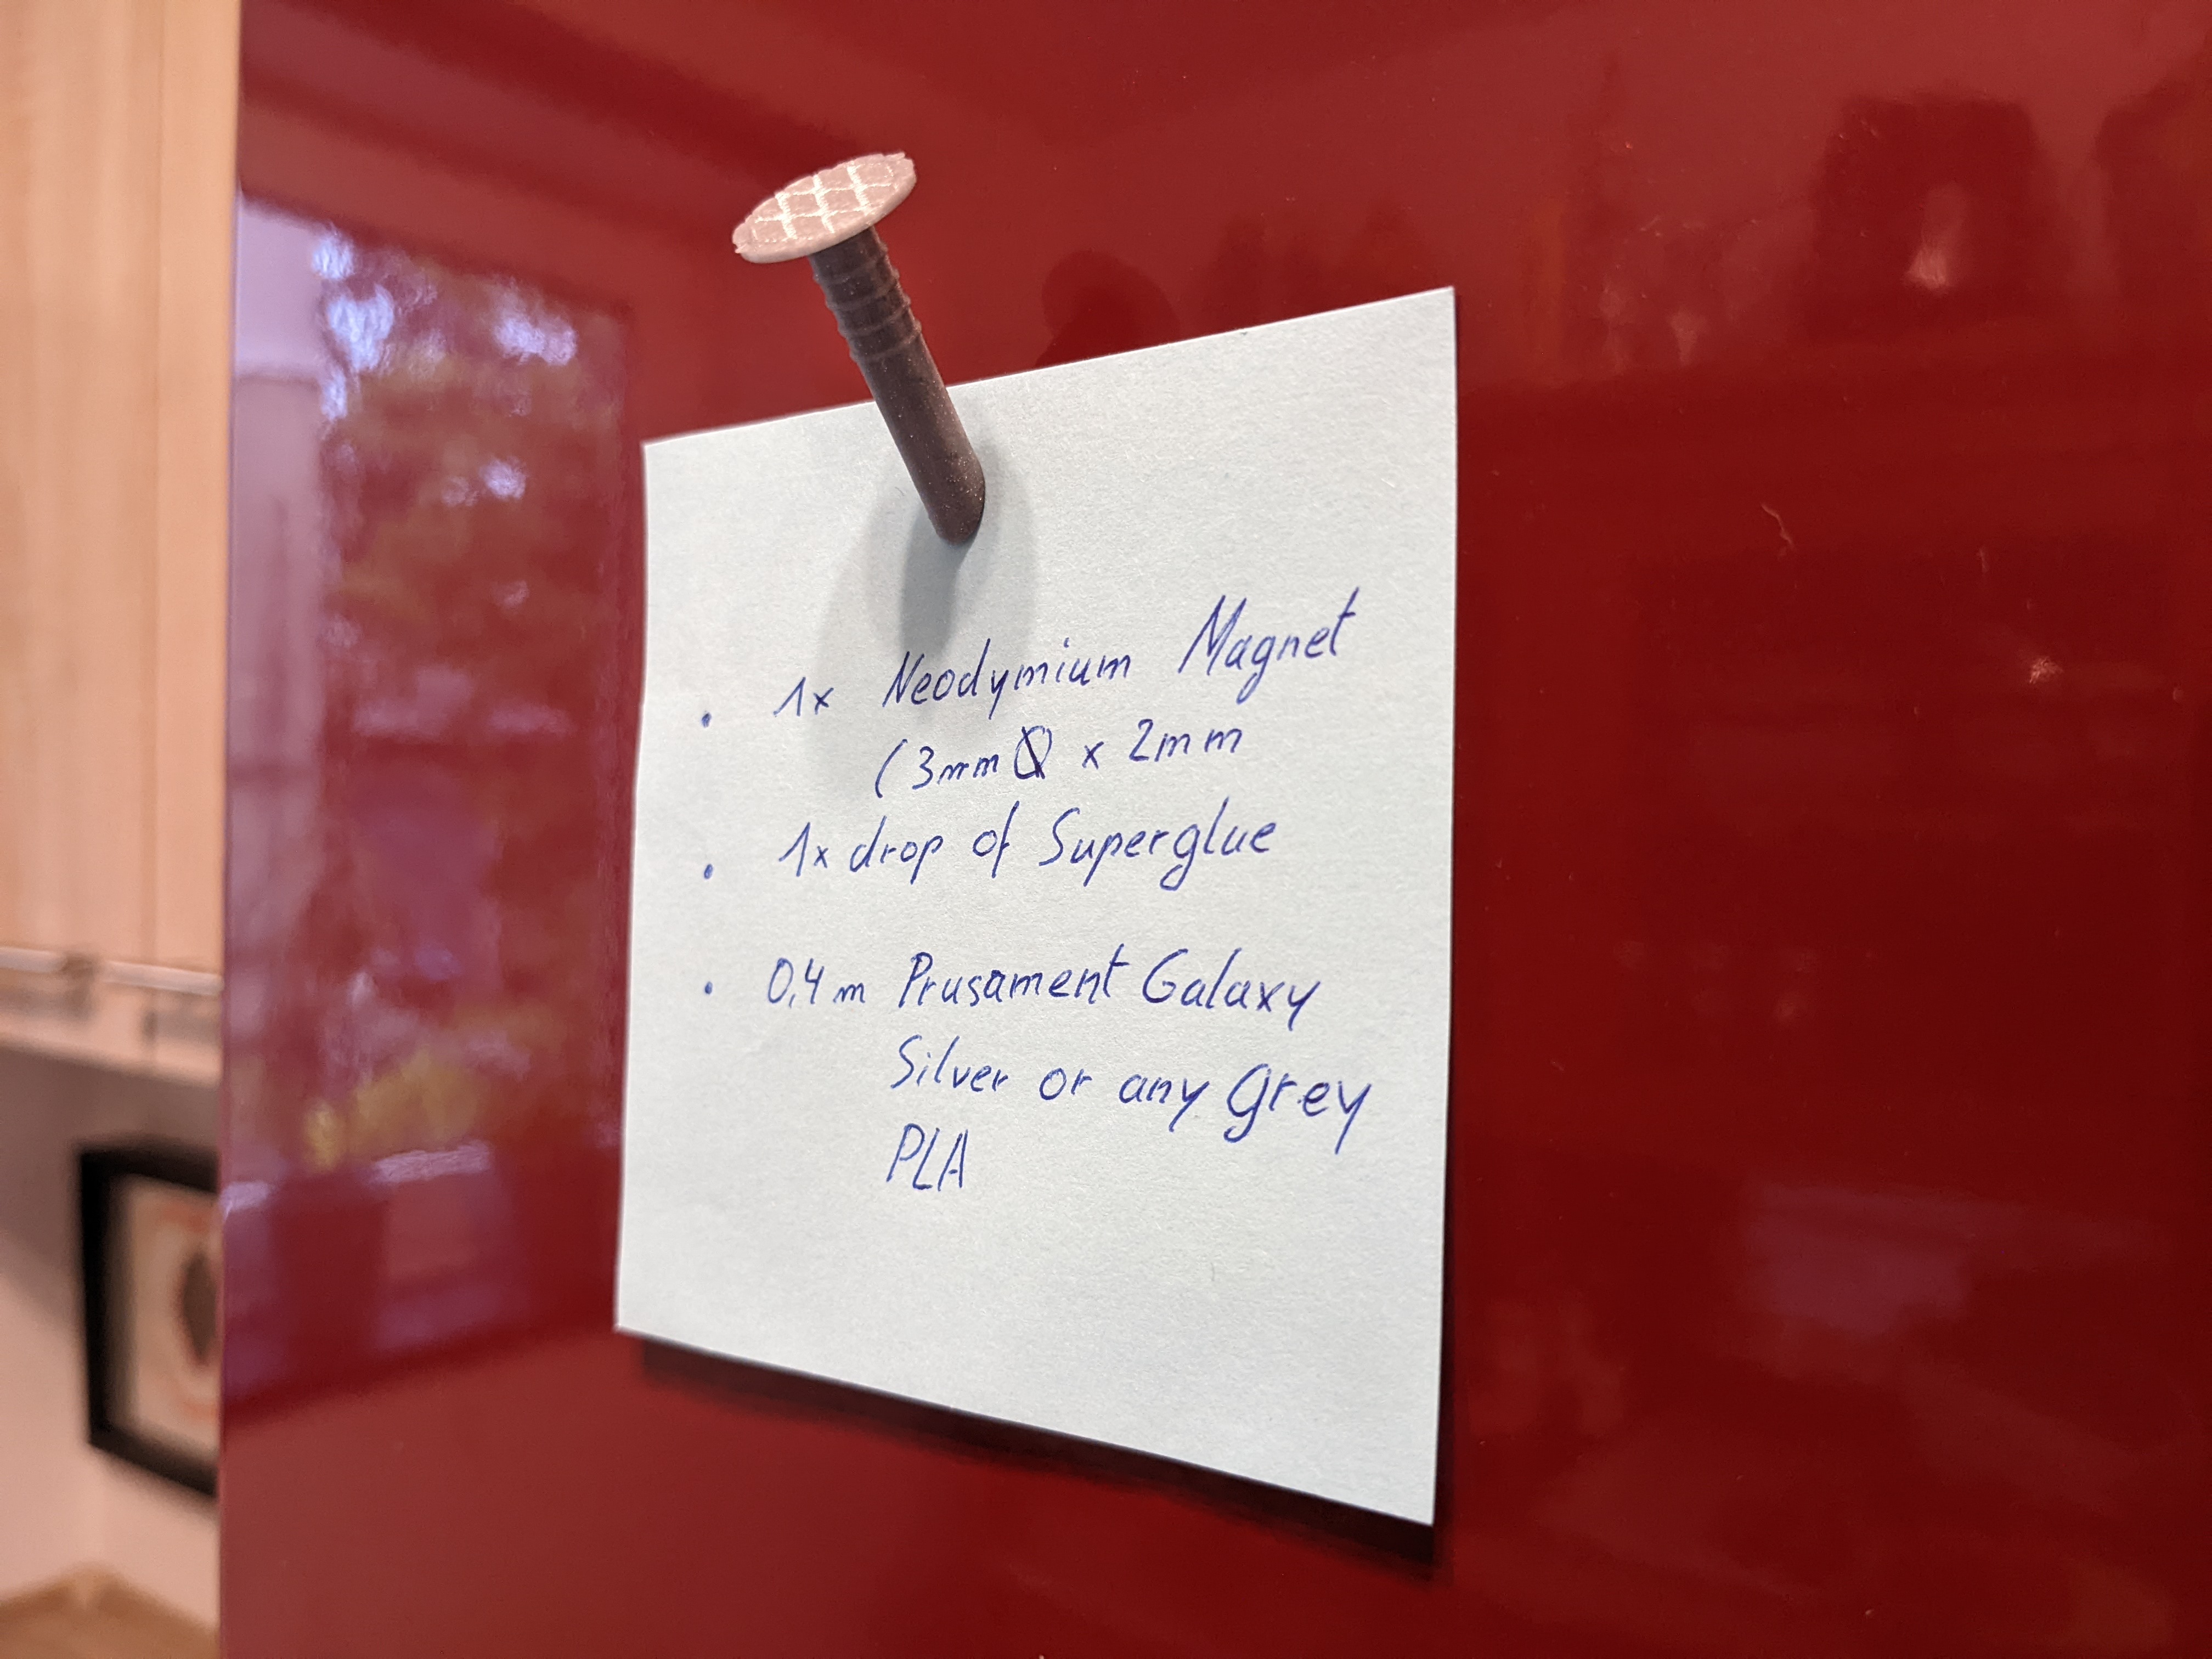 • 1x Neodymium Magnet
(3mm Ø x 2mm
• 1x drop of Superglue
• 0,4m Prusament Galaxy
Silver or any grey
PLA